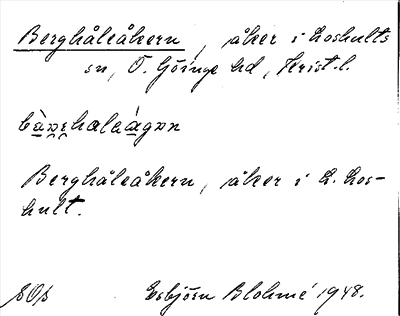 Berghåleåkern, åker i Loshults
sn, Ö. Göinge hd, Krist. l.
Berghåleåkern, åker i L. Los-
hult.
Esbjörn Blohmé 1948.